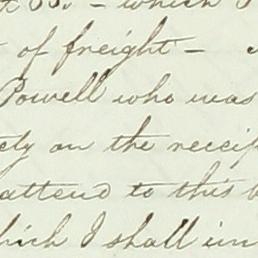 - which I
of freight -
Powell who was
ely on the receip
attend to this b
hich I shall im